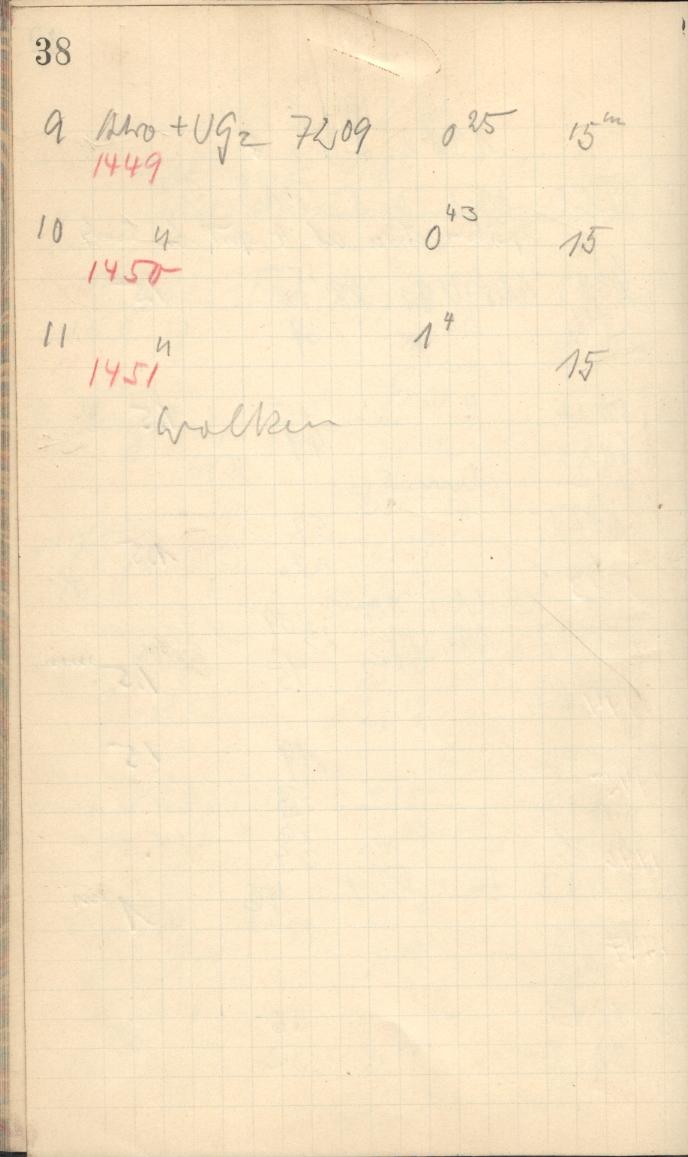 38
9 +UG2 7209 0 25 15m
1449
10 " 0 43 15
1450
11 " 1 4
1451 15
Wolken